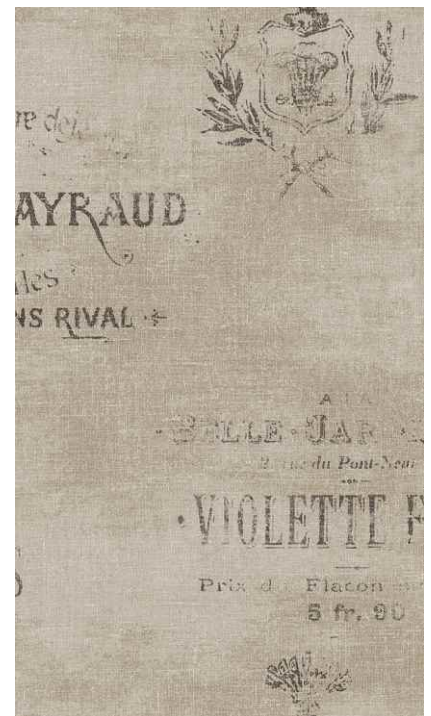 AYRAUD
NS RIVAL
A LA
BELLE · JAR
2, rue du Pont-Neuf
· VIOLETTE F
Prix du Flacon
5 fr. 90